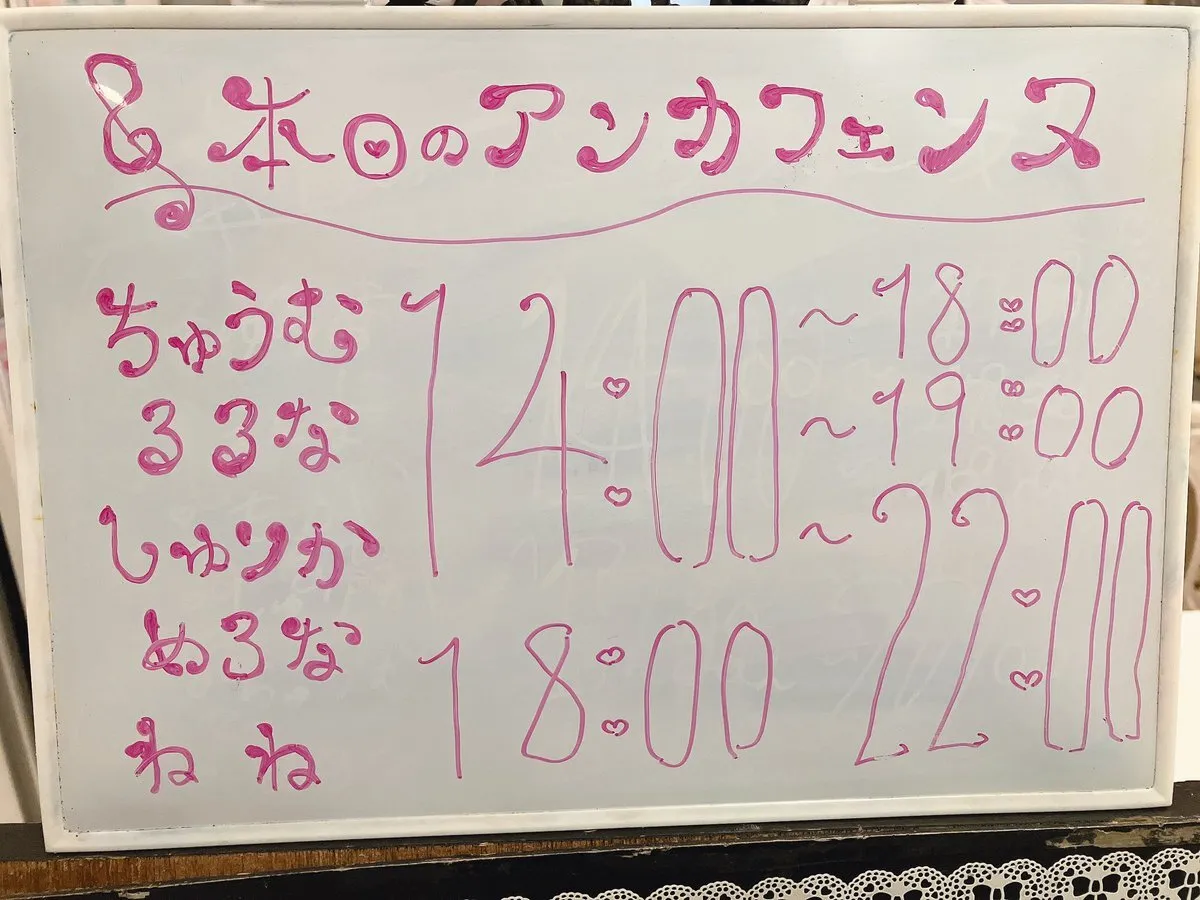 本日のアンカフェンヌ
ちゅうむ
るるな
しゅりか
めるな
ねね
14:00
18:00
~18:00
~19:00
~22:00